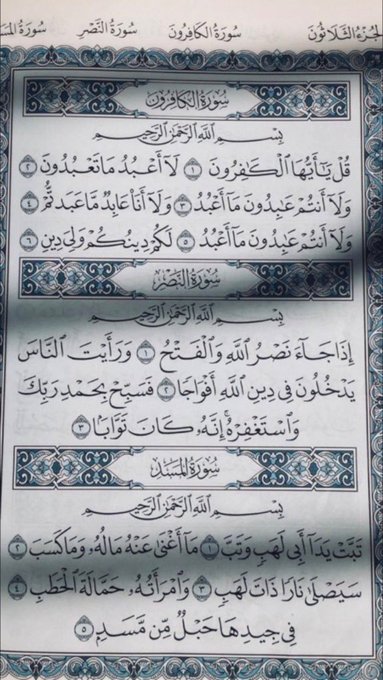 الجزء الثلاثون سورة الكافرون سورة النصر سورة المسد
سُورَةُ الكَافِرُونَ
بِسْمِ ٱللَّهِ ٱلرَّحْمَٰنِ ٱلرَّحِيمِ
قُلْ يَٰٓأَيُّهَا ٱلْكَٰفِرُونَ ١ لَآ أَعْبُدُ مَا تَعْبُدُونَ ٢
وَلَآ أَنتُمْ عَٰبِدُونَ مَآ أَعْبُدُ ٣ وَلَآ أَنَا۠ عَابِدٌ مَّا عَبَدتُّمْ ٤
وَلَآ أَنتُمْ عَٰبِدُونَ مَآ أَعْبُدُ ٥ لَكُمْ دِينُكُمْ وَلِىَ دِينِ ٦
سُورَةُ النَّصْرِ
بِسْمِ ٱللَّهِ ٱلرَّحْمَٰنِ ٱلرَّحِيمِ
إِذَا جَآءَ نَصْرُ ٱللَّهِ وَٱلْفَتْحُ ١ وَرَأَيْتَ ٱلنَّاسَ
يَدْخُلُونَ فِى دِينِ ٱللَّهِ أَفْوَاجًا ٢ فَسَبِّحْ بِحَمْدِ رَبِّكَ
وَٱسْتَغْفِرْهُ ۚ إِنَّهُۥ كَانَ تَوَّابًۢا ٣
سُورَةُ المَسَدِ
بِسْمِ ٱللَّهِ ٱلرَّحْمَٰنِ ٱلرَّحِيمِ
تَبَّتْ يَدَآ أَبِى لَهَبٍ وَتَبَّ ١ مَآ أَغْنَىٰ عَنْهُ مَالُهُۥ وَمَا كَسَبَ ٢
سَيَصْلَىٰ نَارًا ذَاتَ لَهَبٍ ٣ وَٱمْرَأَتُهُۥ حَمَّالَةَ ٱلْحَطَبِ ٤
فِى جِيدِهَا حَبْلٌ مِّن مَّسَدٍۭ ٥